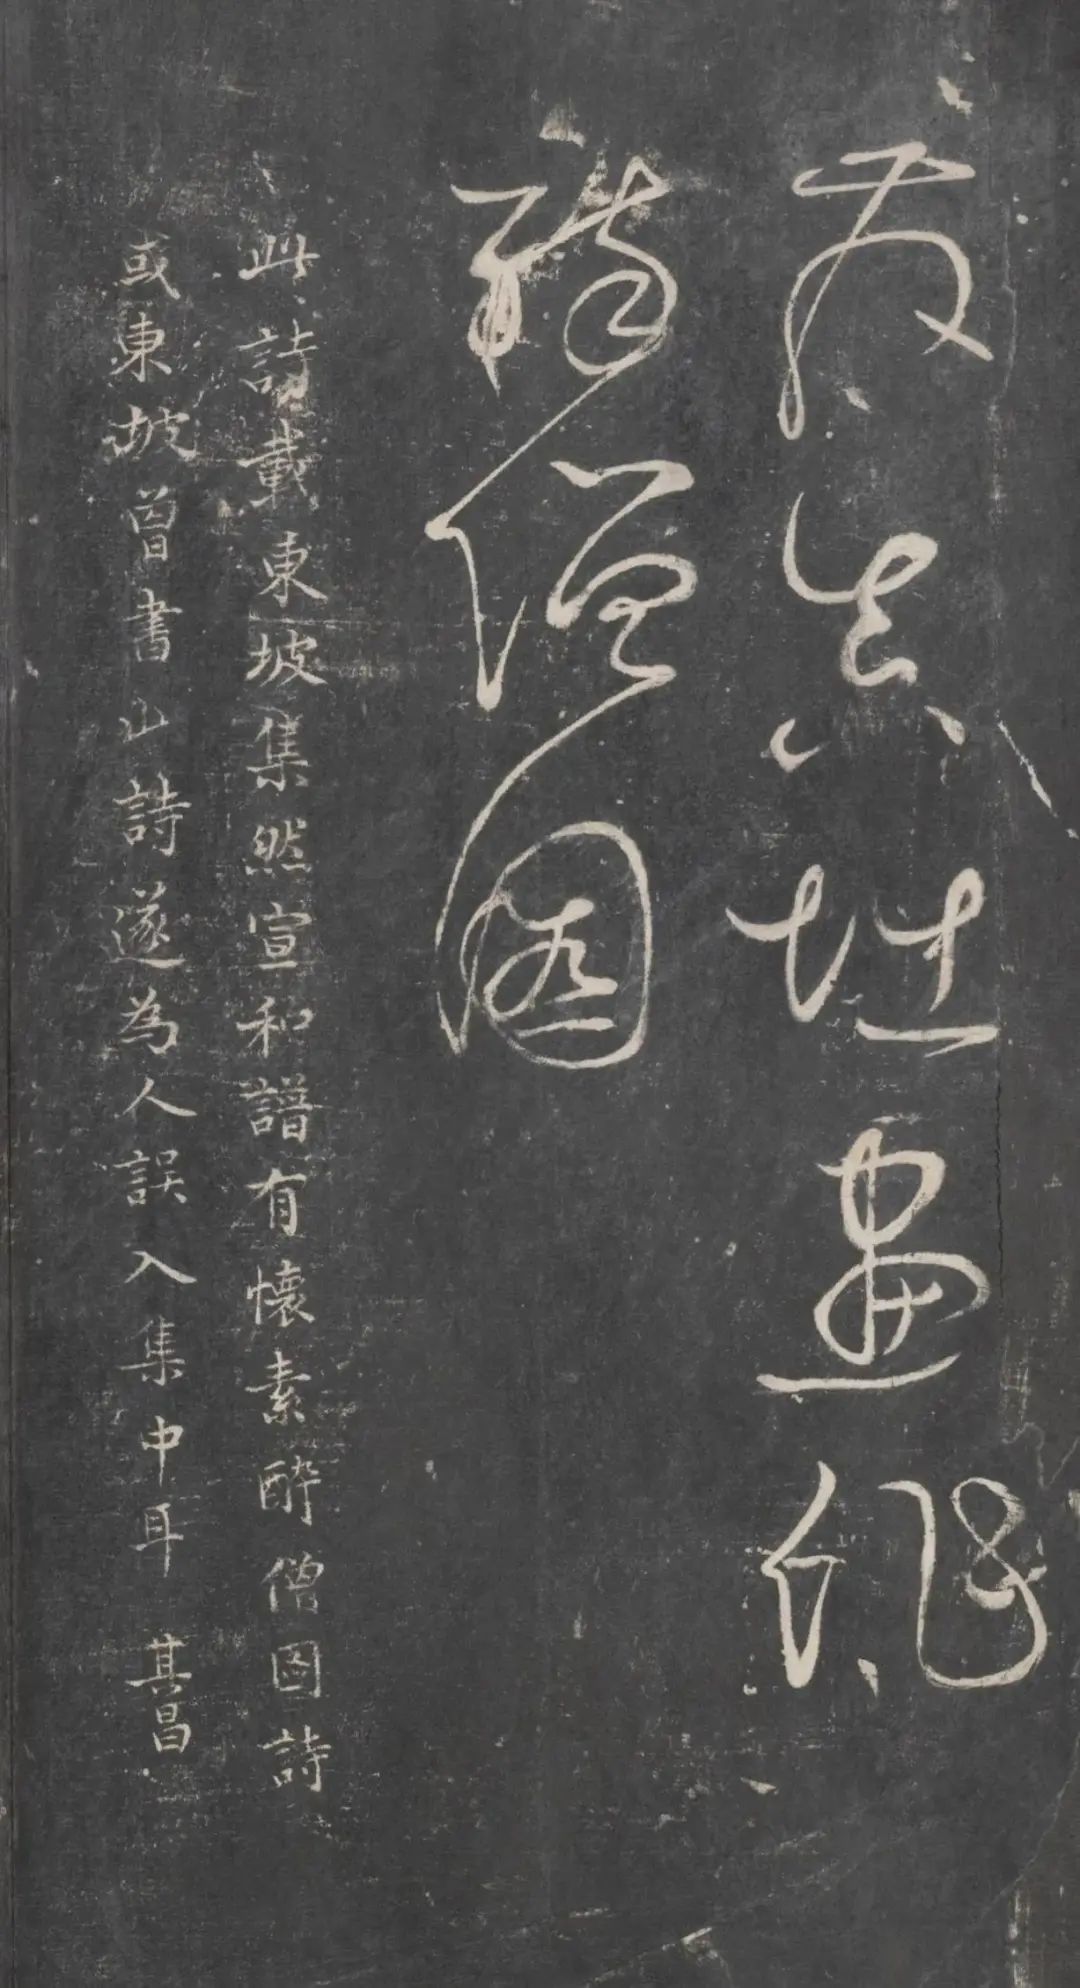 發真堪畫
醉僧圖
此詩載東坡集然宣和譜有懷素醉僧圖詩
或東坡曾書此詩遂為人誤入集中耳 其昌